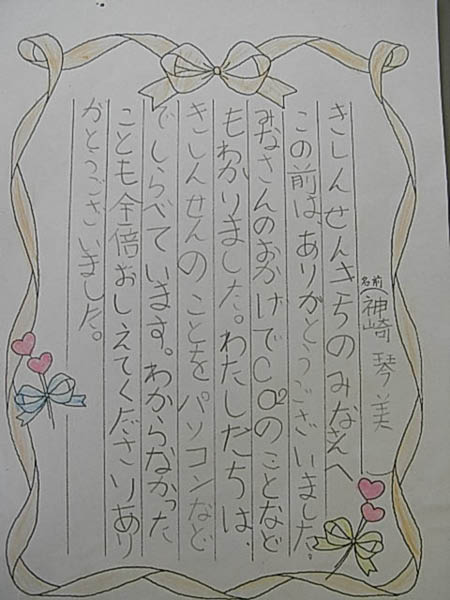 名前(神崎 琴美)
きしんせんきちのみなさんへ
この前はありがとうございました。
みなさんのおかげでCO2のことなど
もわかりました。わたしたちは、
きしんせんのことをパソコンなど
でしらべています。わからなかった
ことも全倍おしえてくださりあり
がとうございました。